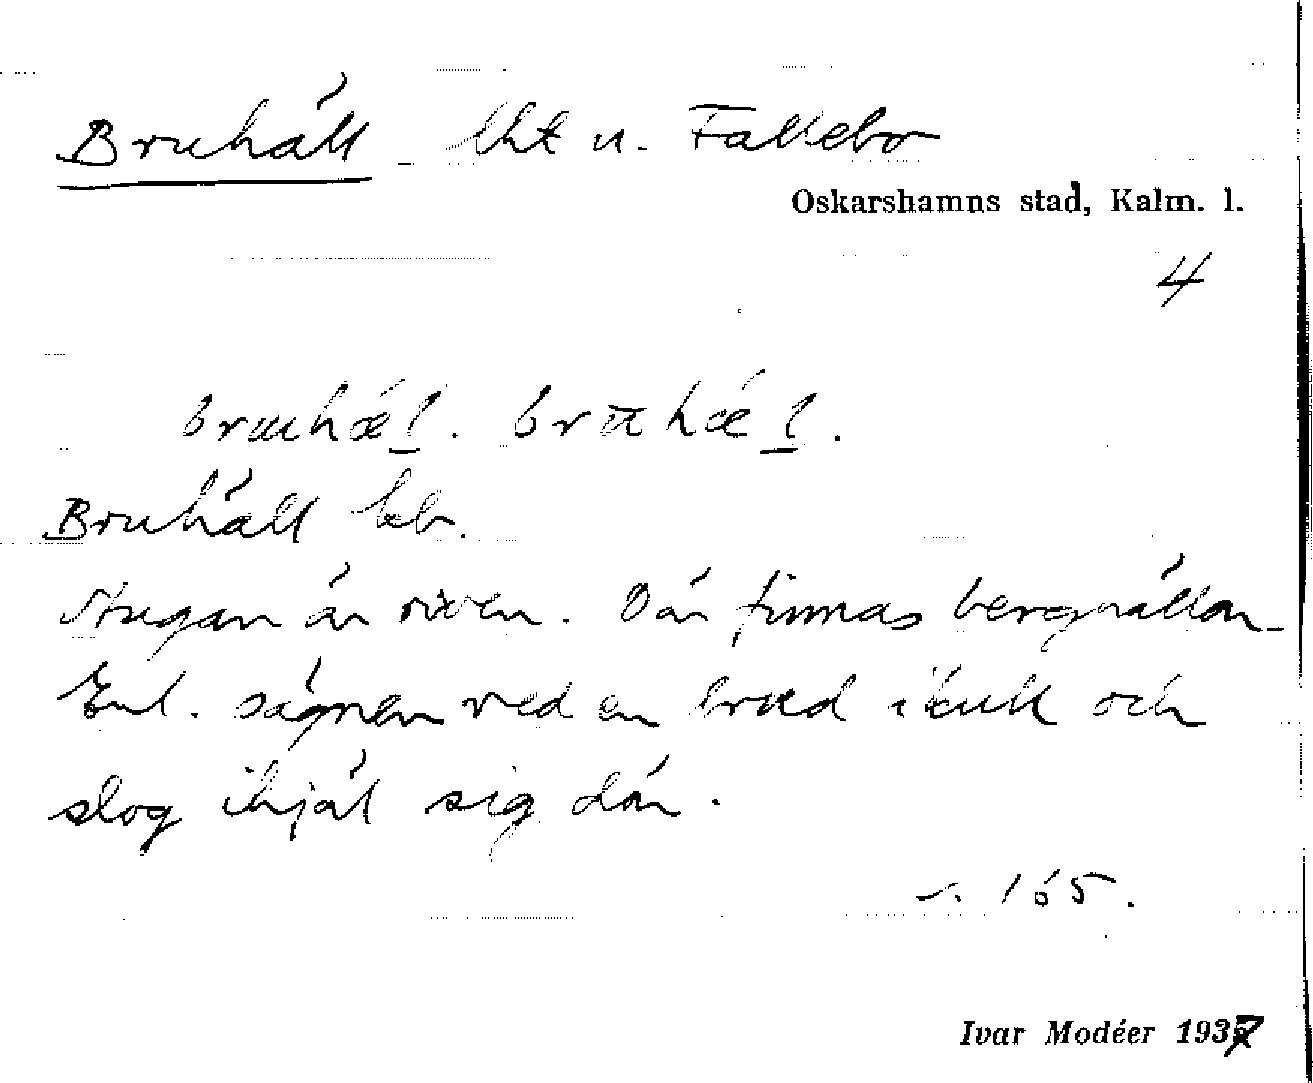 Bruhäll lht u. Fallebo
Oskarshamns stad, Kalm. l.
4
Bruhäll
Stugan är riven. Där finnas berghällar.
Enl. sägnen red en brud ikull och
slog ihjäl sig där.
s. 165.
Ivar Modéer 1937